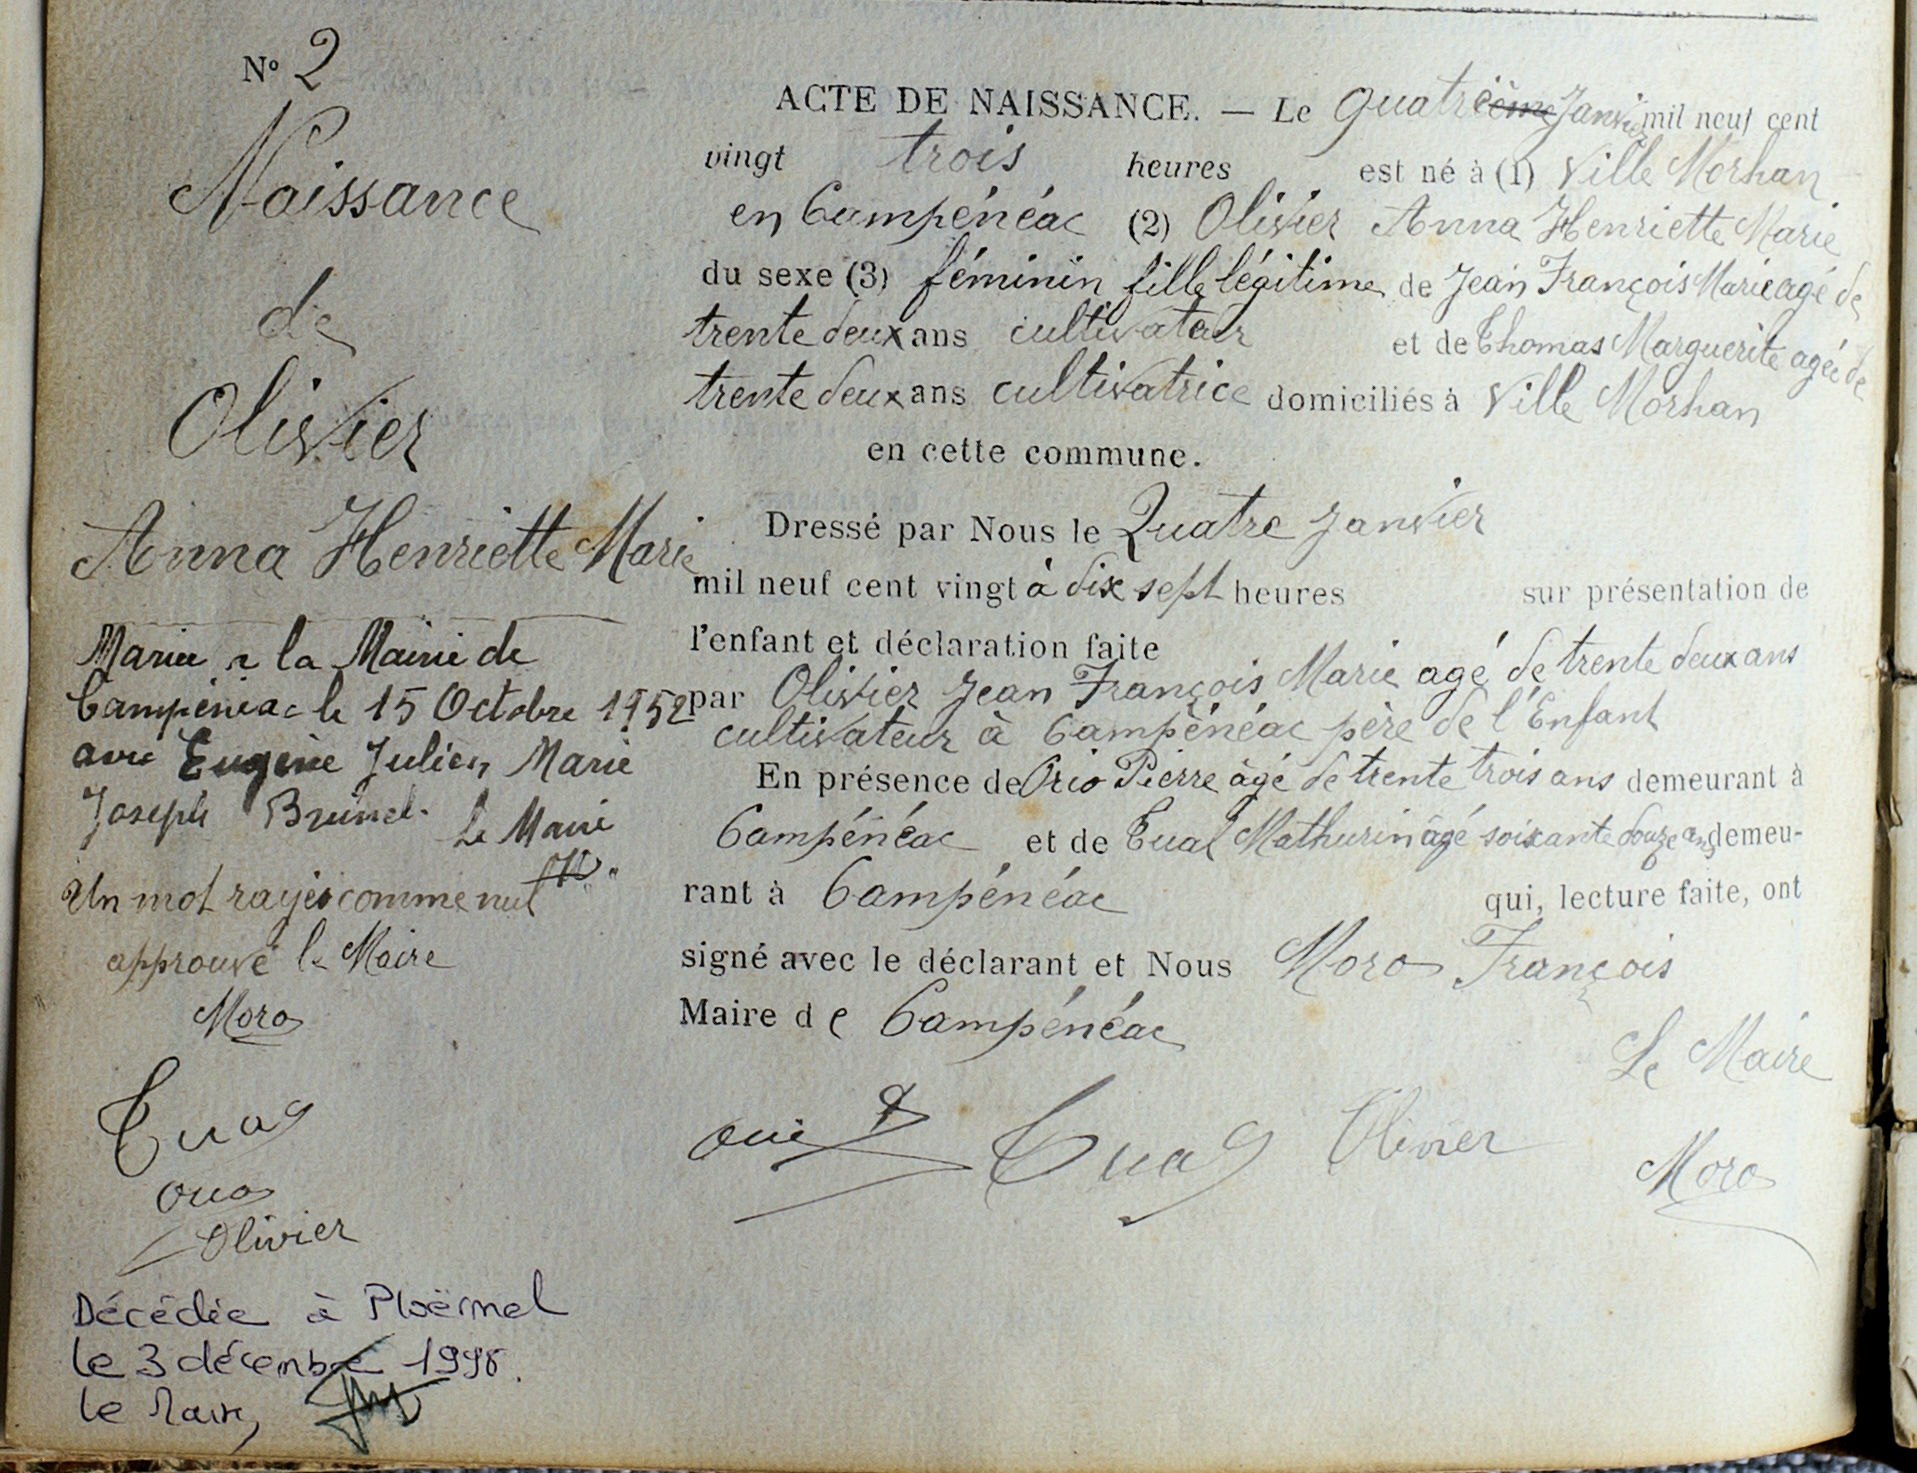 N° 2
Naissance
de
Olivier
Anna Henriette Marie
Mariée à la Mairie de
Campénéac le 15 Octobre 1952
avec Eugène Julien Marie
Joseph Brunel. Le Maire
Un mot rayés comme nul
approuvé le Maire
Moro
Tual
Olivier
Décédée à Ploërmel
le 3 décembre
le Maire,
ACTE DE NAISSANCE. — Le quatrième Janvier mil neuf cent
vingt trois heures est né à (1) Ville Morhan
en Campénéac (2) Olivier Anna Henriette Marie
du sexe (3) féminin fille légitime de Jean François Marie agé de
trente deux ans cultivateur et de Thomas Marguerite agée de
trente deux ans cultivatrice domiciliés à Ville Morhan
en cette commune.
Dressé par Nous le Quatre Janvier
mil neuf cent vingt à dix sept heures sur présentation de
l'enfant et déclaration faite
par Olivier Jean François Marie agé de trente deux ans
cultivateur à Campénéac père de l'Enfant
En présence de Orio Pierre âgé de trente trois ans demeurant à
Campénéac et de Tual Mathurin âgé soixante douze ans demeu-
rant à Campénéac qui, lecture faite, ont
signé avec le déclarant et Nous Moro François
Maire de Campénéac
Le Maire
Tual Olivier Moro